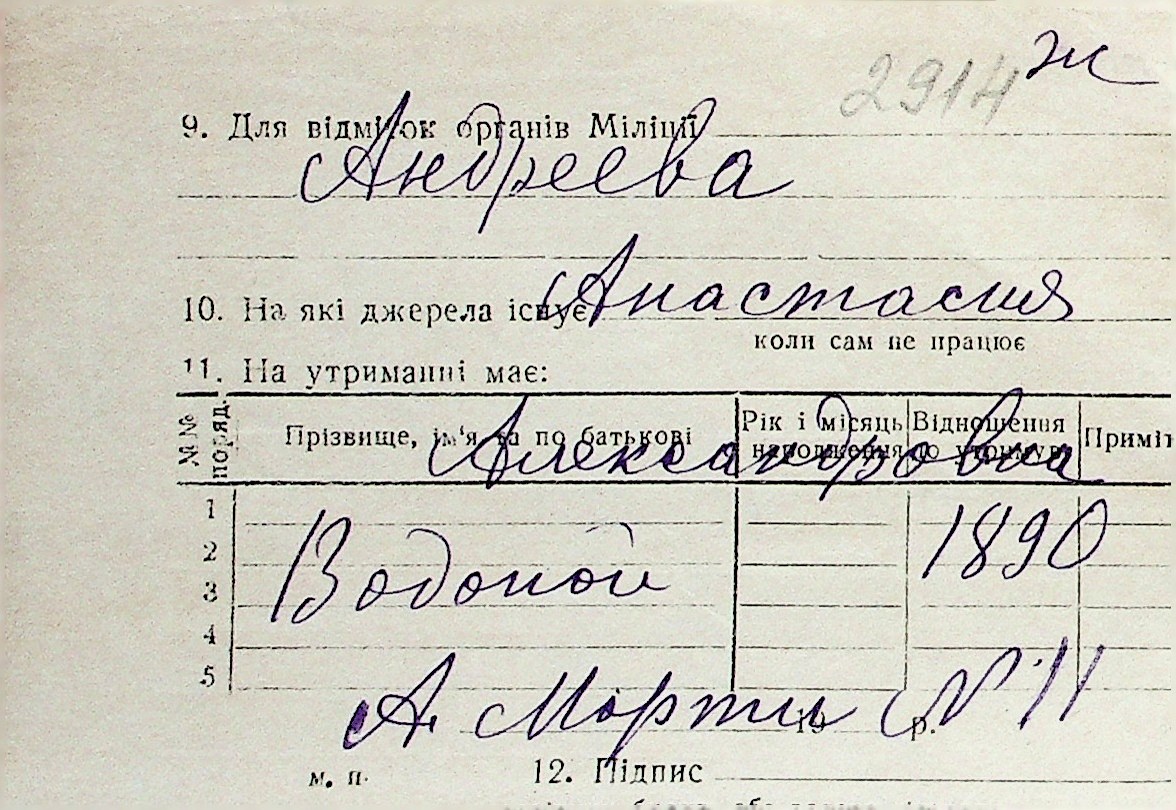 2914 ж
9. Для відміток органів Міліції
Андреева
10. На які джерела існує
Анастасия
коли сам не працює
11. На утриманні має:
№№ поряд. Прізвище, ім'я та по батькові Рік і місяць народження Відношення до утримув. Приміт
Александровна
1
1890
2
Водопой
3
4
5
А Марти N 11
19 р.
м. п. 12. Підпис